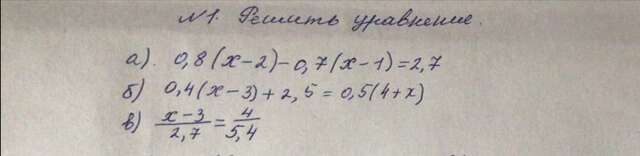 №1. Решить уравнение.
а). 0,8(x-2)-0,7(x-1)=2,7
б) 0,4(x-3)+2,5=0,5(4+x)
в) x-3/2,7=4/5,4